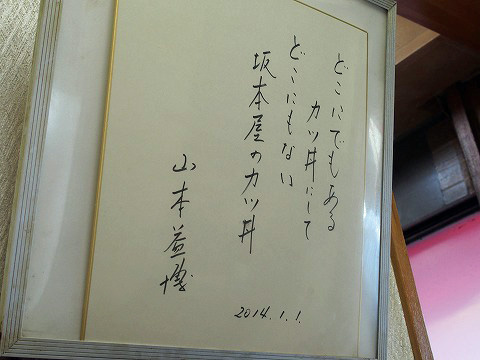 どこにでもある
カツ丼にして
どこにもない
坂本屋のカツ丼
山本益博
2014.1.1.